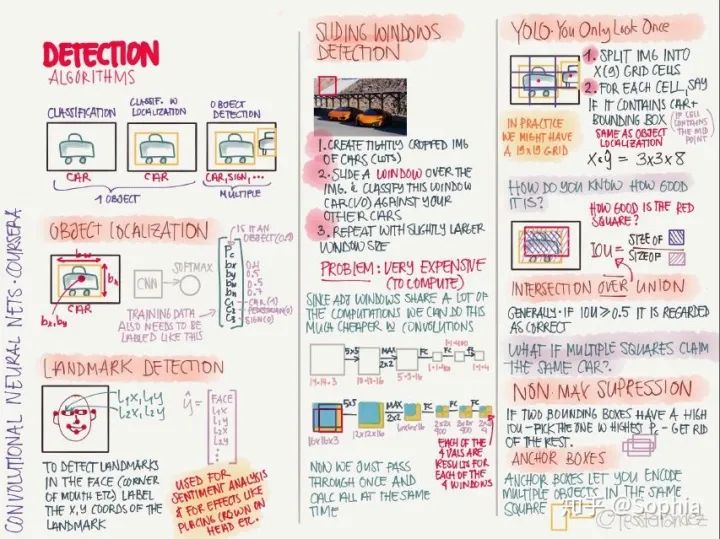 CONVOLUTIONAL NEURAL NETS · COURSERA
DETECTION
ALGORITHMS
CLASSIFICATION
CLASSIF. W
LOCALIZATION
OBJECT
DETECTION
CAR
CAR
CAR, SIGN, ...
1 OBJECT
MULTIPLE
OBJECT LOCALIZATION
bw
bh
bx, by
CAR
CNN
SOFTMAX
IS IT AN
OBJECT (0/1)
Pc
bx
by
bh
bw
C1
C2
C3
0.5
0.7
CAR (1)
PEDESTRIAN (0)
SIGN (0)
TRAINING DATA
ALSO NEEDS TO BE
LABELED LIKE THIS
LANDMARK DETECTION
L1X, L1Y
L2X, L2Y
ŷ =
FACE
L1X
L1Y
L2X
L2Y
⋮
TO DETECT LANDMARKS
IN THE FACE (CORNER
OF MOUTH ETC) LABEL
THE X, Y COORDS OF THE
LANDMARK
USED FOR
SENTIMENT ANALYSIS
& FOR EFFECTS LIKE
PLACING CROWN ON
HEAD ETC.
SLIDING WINDOWS
DETECTION
1. CREATE TIGHTLY CROPPED IMG
OF CARS
2. SLIDE A WINDOW OVER THE
IMG. & CLASSIFY THIS WINDOW
CAR (1/0) AGAINST YOUR
OTHER CARS
3 REPEAT WITH SLIGHTLY LARGER
WINDOW SIZE
PROBLEM: VERY EXPENSIVE
(TO COMPUTE)
SINCE ADJ WINDOWS SHARE A LOT OF
THE COMPUTATIONS WE CAN DO THIS
MUCH CHEAPER W CONVOLUTIONS
5x5
MAX
2x2
FC
FC
14×14×3
10×10×16
5×5×16
1×1×400
1×1×4
5x5
MAX
2x2
FC
FC
16x16x3
12x12x16
6x6x16
2x2x
400
2x2x
400
2x2x
4
EACH OF THE
4 VALS ARE
RESULTS FOR
EACH OF THE
4 WINDOWS
NOW WE JUST PASS
THROUGH ONCE AND
CALC ALL AT THE SAME
TIME
YOLO · You Only Look Once
1. SPLIT IMG INTO
X(9) GRID CELLS
2. FOR EACH CELL, SAY
IF IT CONTAINS CAR +
BOUNDING BOX
(IF CELL
CONTAINS
THE MID
POINT)
IN PRACTICE
WE MIGHT HAVE
A 19x19 GRID
SAME AS OBJECT
LOCALIZATION
= 3x3x8
HOW DO YOU KNOW HOW GOOD
IT IS?
HOW GOOD IS THE RED
SQUARE?
IOU =
SIZE OF
SIZE OF
INTERSECTION OVER UNION
GENERALLY · IF IOU ≥ 0.5 IT IS REGARDED
AS CORRECT
WHAT IF MULTIPLE SQUARES CLAIM
THE SAME CAR?.
NON-MAX SUPRESSION
IF TWO BOUNDING BOXES HAVE A HIGH
IOU - PICK THE ONE W HIGHEST Pc - GET RID
OF THE REST.
ANCHOR BOXES
ANCHOR BOXES LET YOU ENCODE
MULTIPLE OBJECTS IN THE SAME
SQUARE
知乎 @Sophia
@TessFerrandez